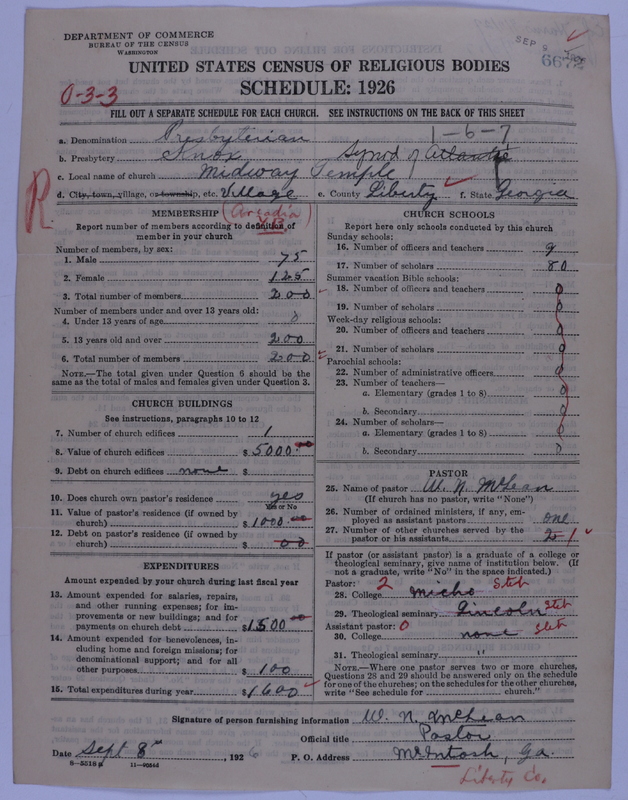 DEPARTMENT OF COMMERCE
BUREAU OF THE CENSUS
WASHINGTON
SEP 9
6672
UNITED STATES CENSUS OF RELIGIOUS BODIES
SCHEDULE: 1926
0-3-3
FILL OUT A SEPARATE SCHEDULE FOR EACH CHURCH. SEE INSTRUCTIONS ON THE BACK OF THIS SHEET
1-6-7
a. Denomination Presbyterian
b. Presbytery Knox Synod of Atlantic
c. Local name of church Midway Temple
d. City, town, village, or township, etc. Village e. County Liberty f. State Georgia
R
MEMBERSHIP (Arcadia)
Report number of members according to definition of member in your church
Number of members, by sex:
1. Male 75
2. Female 125
3. Total number of members 200
Number of members under and over 13 years old:
4. Under 13 years of age 0
5. 13 years old and over 200
6. Total number of members 200
NOTE.—The total given under Question 6 should be the same as the total of males and females given under Question 3.
CHURCH BUILDINGS
See instructions, paragraphs 10 to 12
7. Number of church edifices 1
8. Value of church edifices $ 5000.00
9. Debt on church edifices none $
10. Does church own pastor's residence yes
Yes or No
11. Value of pastor's residence (if owned by church) $ 1000.00
12. Debt on pastor's residence (if owned by church) $ 00
EXPENDITURES
Amount expended by your church during last fiscal year
13. Amount expended for salaries, repairs, and other running expenses; for improvements or new buildings; and for payments on church debt $ 1500.00
14. Amount expended for benevolences, including home and foreign missions; for denominational support; and for all other purposes $ 100
15. Total expenditures during year $ 1600
CHURCH SCHOOLS
Report here only schools conducted by this church
Sunday schools:
16. Number of officers and teachers 9
17. Number of scholars 80
Summer vacation Bible schools:
18. Number of officers and teachers 0
19. Number of scholars 0
Week-day religious schools:
20. Number of officers and teachers 0
21. Number of scholars 0
Parochial schools:
22. Number of administrative officers 0
23. Number of teachers—
a. Elementary (grades 1 to 8) 0
b. Secondary 0
24. Number of scholars—
a. Elementary (grades 1 to 8) 0
b. Secondary 0
PASTOR
25. Name of pastor W. N. McLean
(If church has no pastor, write "None")
26. Number of ordained ministers, if any, employed as assistant pastors one
27. Number of other churches served by the pastor or his assistants 2 1
If pastor (or assistant pastor) is a graduate of a college or theological seminary, give name of institution below. (If not a graduate, write "No" in the space indicated.)
Pastor: 2
28. College
29. Theological seminary Lincoln
Assistant pastor: 0
30. College none
31. Theological seminary "
NOTE.—Where one pastor serves two or more churches, Questions 28 and 29 should be answered only on the schedule for one of the churches; on the schedules for the other churches, write "See schedule for church."
Signature of person furnishing information W. N. McLean
Official title Pastor
Date Sept 8th, 1926 P. O. Address McIntosh, Ga.
8-5518 11-
Liberty Co.